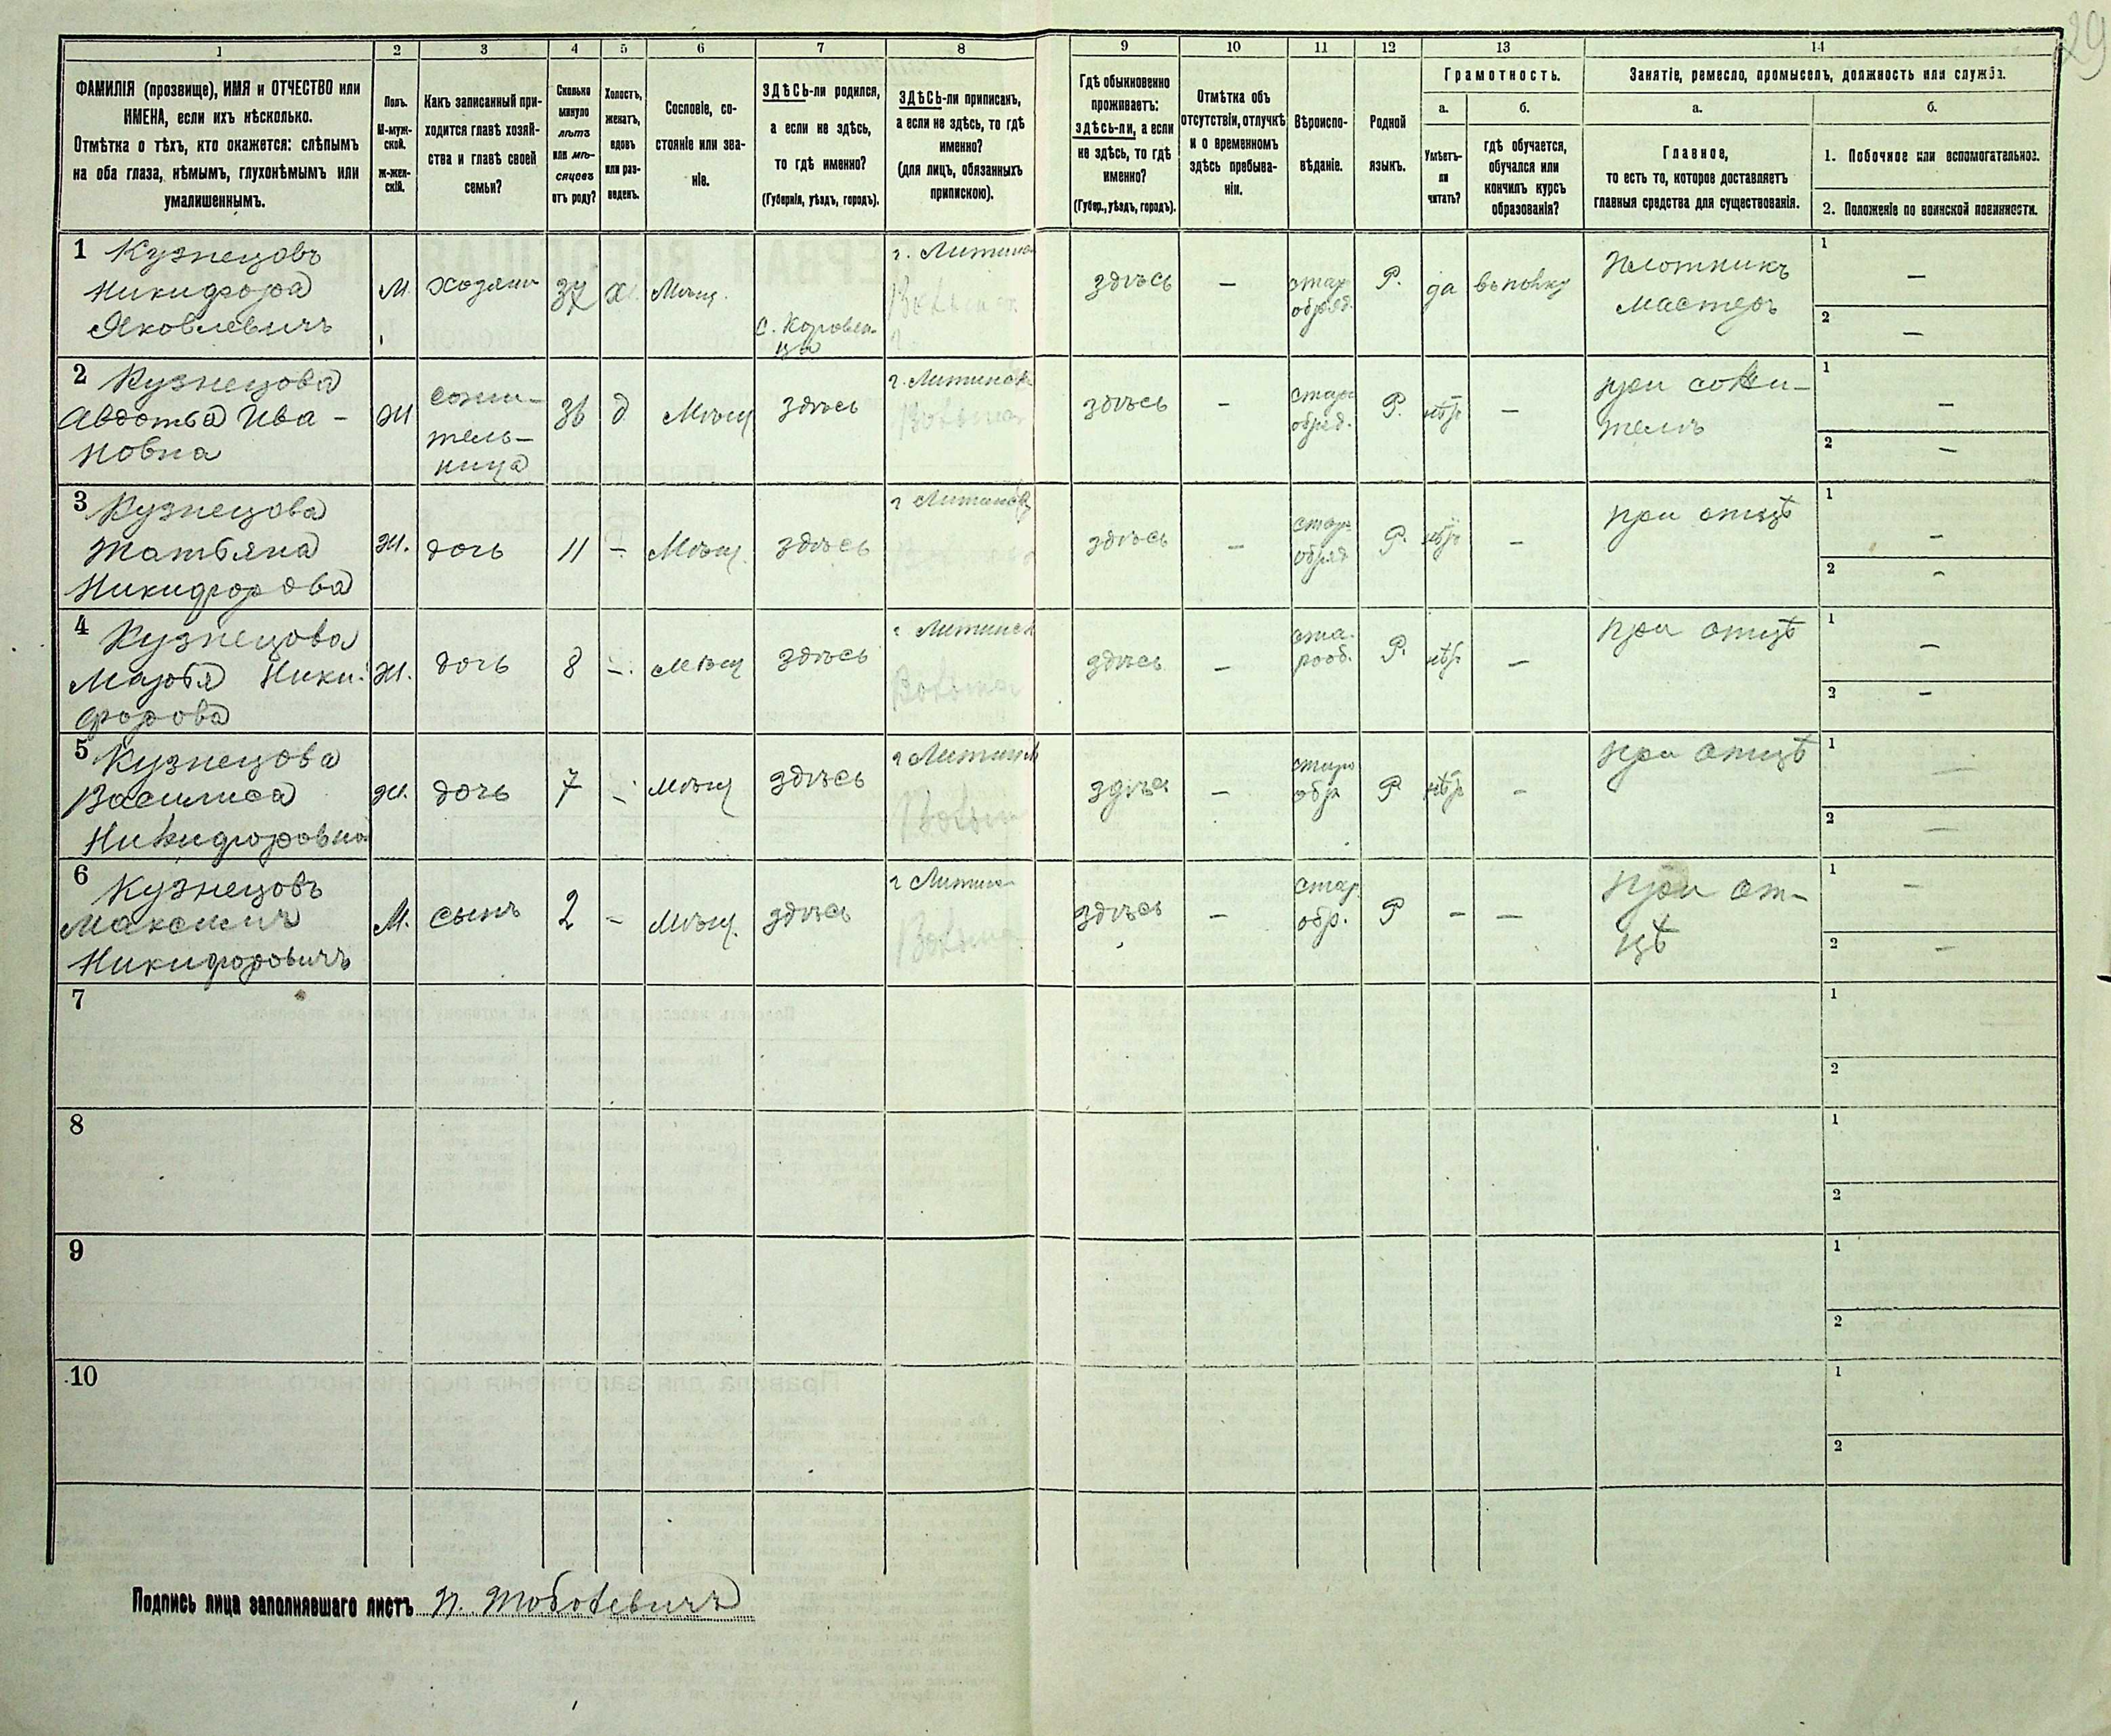 29
1 2 3 4 5 6 7 8 9 10 11 12 13 14
ФАМИЛІЯ (прозвище), ИМЯ и ОТЧЕСТВО или
ИМЕНА, если ихъ нѣсколько.
Отмѣтка о тѣхъ, кто окажется: слѣпымъ
на оба глаза, нѣмымъ, глухонѣмымъ или
умалишеннымъ.
Полъ.
М-муж-
ской.
Ж-жен-
скій.
Какъ записанный при-
ходится главѣ хозяй-
ства и главѣ своей
семьи?
Сколько
минуло
лѣтъ
или мѣ-
сяцевъ
отъ роду?
Холостъ,
женатъ,
вдовъ
или раз-
веденъ.
Сословіе, со-
стояніе или зва-
ніе.
ЗДѢСЬ-ли родился,
а если не здѣсь,
то гдѣ именно?
(Губернія, уѣздъ, городъ).
ЗДѢСЬ-ли приписанъ,
а если не здѣсь, то гдѣ
именно?
(для лицъ, обязанныхъ
припискою).
Гдѣ обыкновенно
проживаетъ:
здѣсь-ли, а если
не здѣсь, то гдѣ
именно?
(Губер., уѣздъ, городъ).
Отмѣтка объ
отсутствіи, отлучкѣ
и о временномъ
здѣсь пребыва-
ніи.
Вѣроиспо-
вѣданіе.
Родной
языкъ.
Грамотность.
а.
Умѣетъ-
ли
читать?
б.
гдѣ обучается,
обучался или
кончилъ курсъ
образованія?
Занятіе, ремесло, промыселъ, должность или служба.
а.
Главное,
то есть то, которое доставляетъ
главныя средства для существованія.
б.
1. Побочное или вспомогательное.
2. Положеніе по воинской повинности.
1 Кузнецовъ
Никифора
Яковлевичъ
М.
хозяин
37
х.
Мѣщ.
г. Литин
здѣсь
–
стар
обряд.
Р.
да
Плотникъ
мастеръ
1 –
2 –
2 Кузнецова
Авдотья Ива-
новна
Ж
сожи-
тель-
ница
36
д
Мѣщ
здѣсь
здѣсь
–
старо
обряд.
Р.
нѣт
–
при сожи-
тель
1 –
2 –
3 Кузнецова
Татьяна
Никифорова
Ж.
дочь
11
–
Мѣщ.
здѣсь
здѣсь
–
стар
обряд
Р.
нѣт
–
при отцѣ
1 –
2 –
4 Кузнецова
Марья Ники-
форова
Ж.
дочь
8
–
Мѣщ
здѣсь
здѣсь
–
ста-
рооб.
Р.
нѣт
–
при отцѣ
1 –
2 –
5 Кузнецова
Василиса
Никифоровна
Ж.
дочь
7
–
Мѣщ
здѣсь
здѣсь
–
старо
обр
Р
нѣт
–
при отцѣ
1 –
2 –
6 Кузнецовъ
Максимъ
Никифоровичъ
М.
сынъ
2
–
Мѣщ.
здѣсь
г Литин
здѣсь
–
стар.
обр.
Р
–
–
при от-
цѣ
1 –
2 –
7
1
2
8
1
2
9
1
2
10
1
2
Подпись лица заполнявшаго листъ